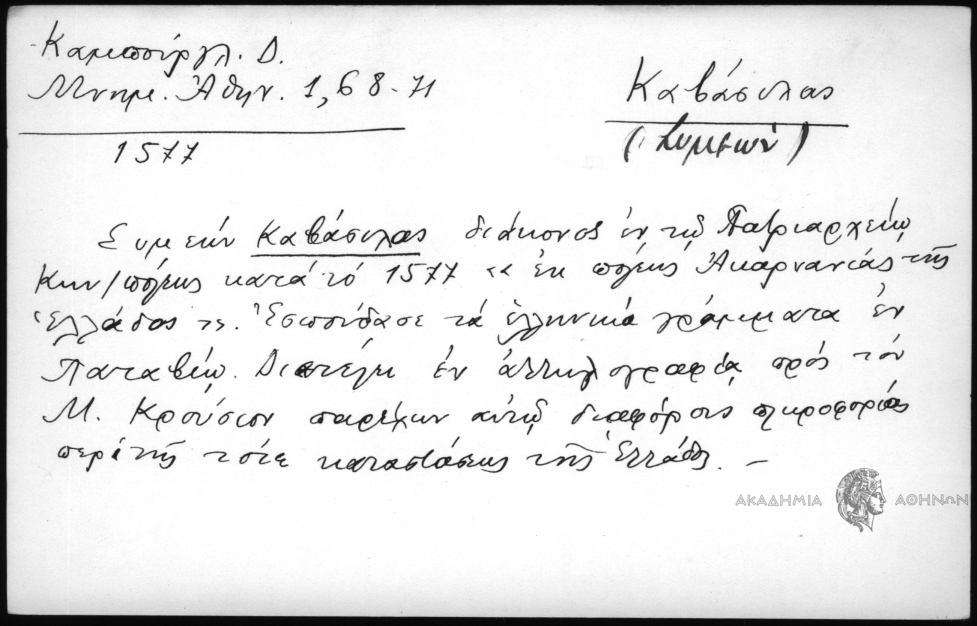 Καμπούργλ. Δ.
Μνημ. Ἀθην. 1, 68-71
1577
Καβάσιλας
(Συμεών)
Συμεών Καβάσιλας διάκονος ἐν τῷ Πατριαρχείῳ
Κων/πόλεως κατά τό 1577 "ἐκ πόλεως Ἀκαρνανίας τῆς
Ἑλλάδος". Ἐσπούδασε τά ἑλληνικά γράμματα ἐν
Παταβίῳ. Διετέλει ἐν ἀλληλογραφίᾳ πρός τόν
Μ. Κρούσιον παρέχων αὐτῷ διαφόρους πληροφορίας
περί τῆς τότε καταστάσεως τῆς Ἑλλάδος. –
ΑΚΑΔΗΜΙΑ ΑΘΗΝΩΝ